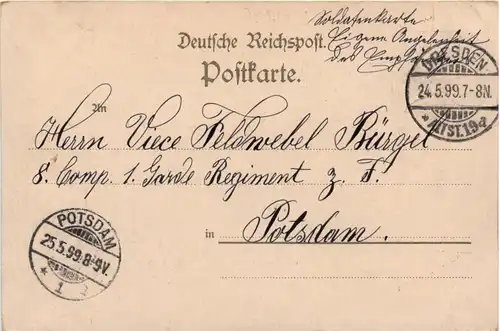 Soldatenkarte
Eigene Angelegenheit
des Empfängers
Deutsche Reichspost.
Postkarte.
DRESDEN
24.5.99.7-8N.
* ALTST.19d
An
Herrn Viece Feldwebel Bürgel
8. Comp. 1. Garde Regiment z. F.
in Potsdam.
POTSDAM
25.5.99.8-9V.
* 1